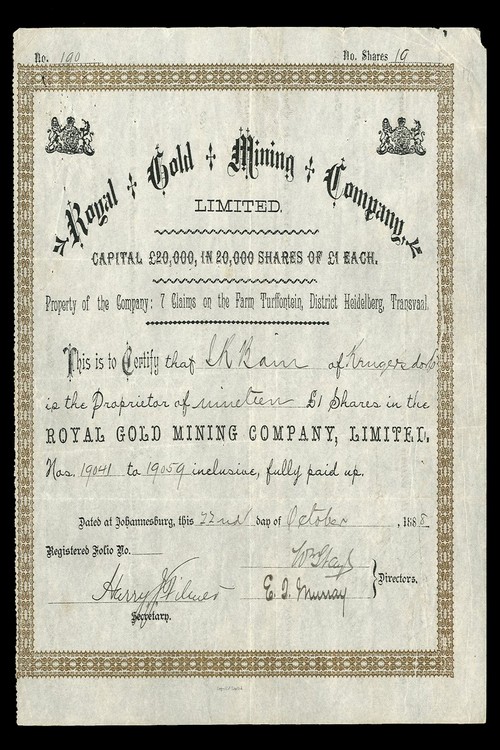 No. 190 No. Shares 19
Royal Gold Mining Company,
LIMITED.
CAPITAL £20,000, IN 20,000 SHARES OF £1 EACH.
Property of the Company: 7 Claims on the Farm Turffontein, District Heidelberg, Transvaal.
This is to Certify that of Krugersdorp
is the Proprietor of nineteen £1 Shares in the
ROYAL GOLD MINING COMPANY, LIMITED.
Nos. 19041 to 19059 inclusive, fully paid up.
Dated at Johannesburg, this 22nd day of October, 1888
Registered Folio No.
E. J. Murray
Directors.
Secretary.